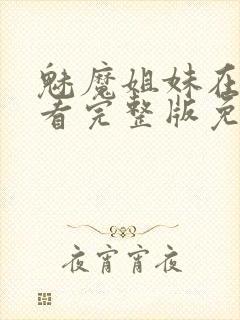 魅魔姐妹在
看完整版免
夜宵宵夜